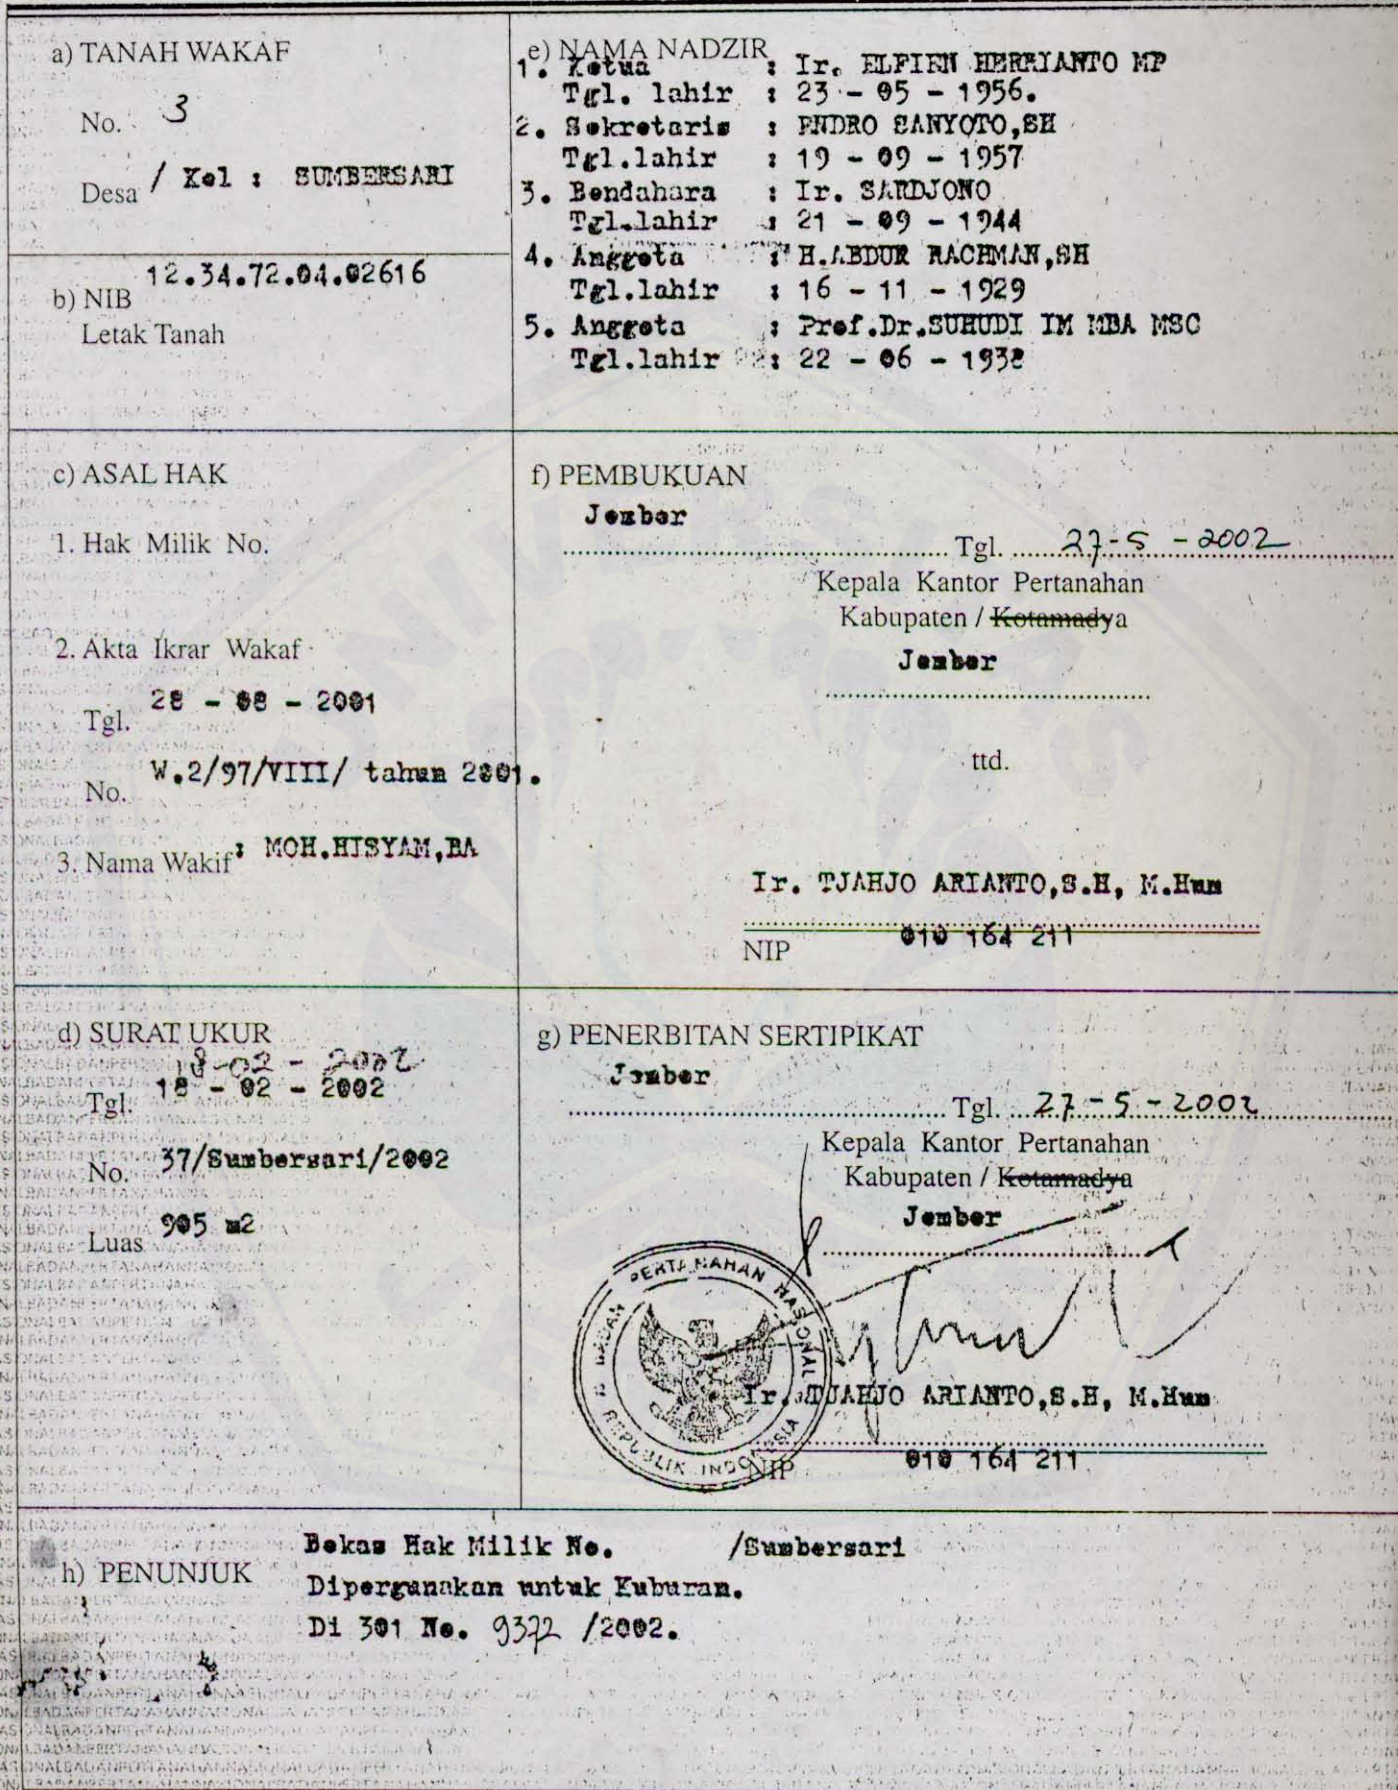 a) TANAH WAKAF
No. 3
Desa / Kel : SUMBERSARI
b) NIB 12.34.72.04.02616
Letak Tanah
e) NAMA NADZIR
1. Ketua : Ir. ELFIEN HERRYANTO MP
Tgl. lahir : 23 - 05 - 1956.
2. Sekretaris : ENDRO SANYOTO,SH
Tgl.lahir : 19 - 09 - 1957
3. Bendahara : Ir. SARDJONO
Tgl.lahir : 21 - 09 - 1944
4. Anggota : H.ABDUR RACHMAN,SH
Tgl.lahir : 16 - 11 - 1929
5. Anggota : Prof.Dr.SUHUDI IM MBA MSC
Tgl.lahir : 22 - 06 - 1938
c) ASAL HAK
1. Hak Milik No.
2. Akta Ikrar Wakaf
Tgl. 28 - 08 - 2001
No. W.2/97/VIII/ tahun 2001.
3. Nama Wakif : MOH.HISYAM,BA
f) PEMBUKUAN
Jember
Tgl. 27-5-2002
Kepala Kantor Pertanahan
Kabupaten / Kotamadya
Jember
ttd.
Ir. TJAHJO ARIANTO,S.H, M.Hum
NIP 010 164 211
d) SURAT UKUR
18-02-2002
Tgl. 18 - 02 - 2002
No. 37/Sumbersari/2002
Luas 905 m2
g) PENERBITAN SERTIPIKAT
Jember
Tgl. 27-5-2002
Kepala Kantor Pertanahan
Kabupaten / Kotamadya
Jember
BADAN PERTANAHAN NASIONAL
REPUBLIK INDONESIA
Ir. TJAHJO ARIANTO,S.H, M.Hum
NIP 010 164 211
h) PENUNJUK
Bekas Hak Milik No. /Sumbersari
Dipergunakan untuk Kuburan.
Di 301 No. 9372 /2002.